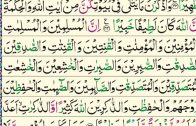 وَاذْكُرْنَ مَا يُتْلٰى فِيْ بُيُوْتِكُنَّ مِنْ اٰيٰتِ اللّٰهِ وَالْحِكْمَةِ
اللّٰهَ كَانَ لَطِيْفًا خَبِيْرًا اِنَّ الْمُسْلِمِيْنَ وَالْمُسْلِمٰتِ
وَالْمُؤْمِنِيْنَ وَالْمُؤْمِنٰتِ وَالْقٰنِتِيْنَ وَالْقٰنِتٰتِ وَالصّٰدِقِيْنَ
وَالصّٰدِقٰتِ وَالصّٰبِرِيْنَ وَالصّٰبِرٰتِ وَالْخٰشِعِيْنَ وَالْخٰشِعٰتِ
وَالْمُتَصَدِّقِيْنَ وَالْمُتَصَدِّقٰتِ وَالصَّآئِمِيْنَ وَالصّٰٓئِمٰتِ وَالْحٰفِظِيْنَ
فُرُوْجَهُمْ وَالْحٰفِظٰتِ وَالذّٰكِرِيْنَ اللّٰهَ كَثِيْرًا وَّالذّٰكِرٰتِ اَعَدَّ